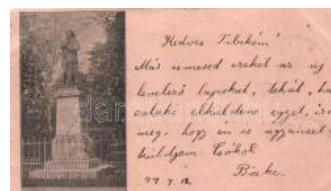 Kedves Tibikém!
Más ismered ezeket az új
levelező lapokat, tehát, ha
valaki elküldene egyet, írd
meg, hogy én is ugyanazt
küldjem. Csókol
Böske.